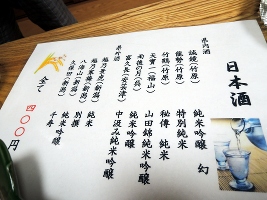 日本酒
県内酒
誠鏡(竹原) 純米吟醸 幻
龍勢(竹原) 特別純米
竹鶴(竹原) 秘傳 純米
天寶一(福山) 山田錦純米吟醸
雨後の月(呉) 純米吟醸
富久長(安芸津) 中汲み純米吟醸
県外酒
越乃景虎(新潟) 純米
越乃寒梅(新潟) 別撰
八海山(新潟) 純米吟醸
久保田(新潟) 千寿
全て 四〇〇円